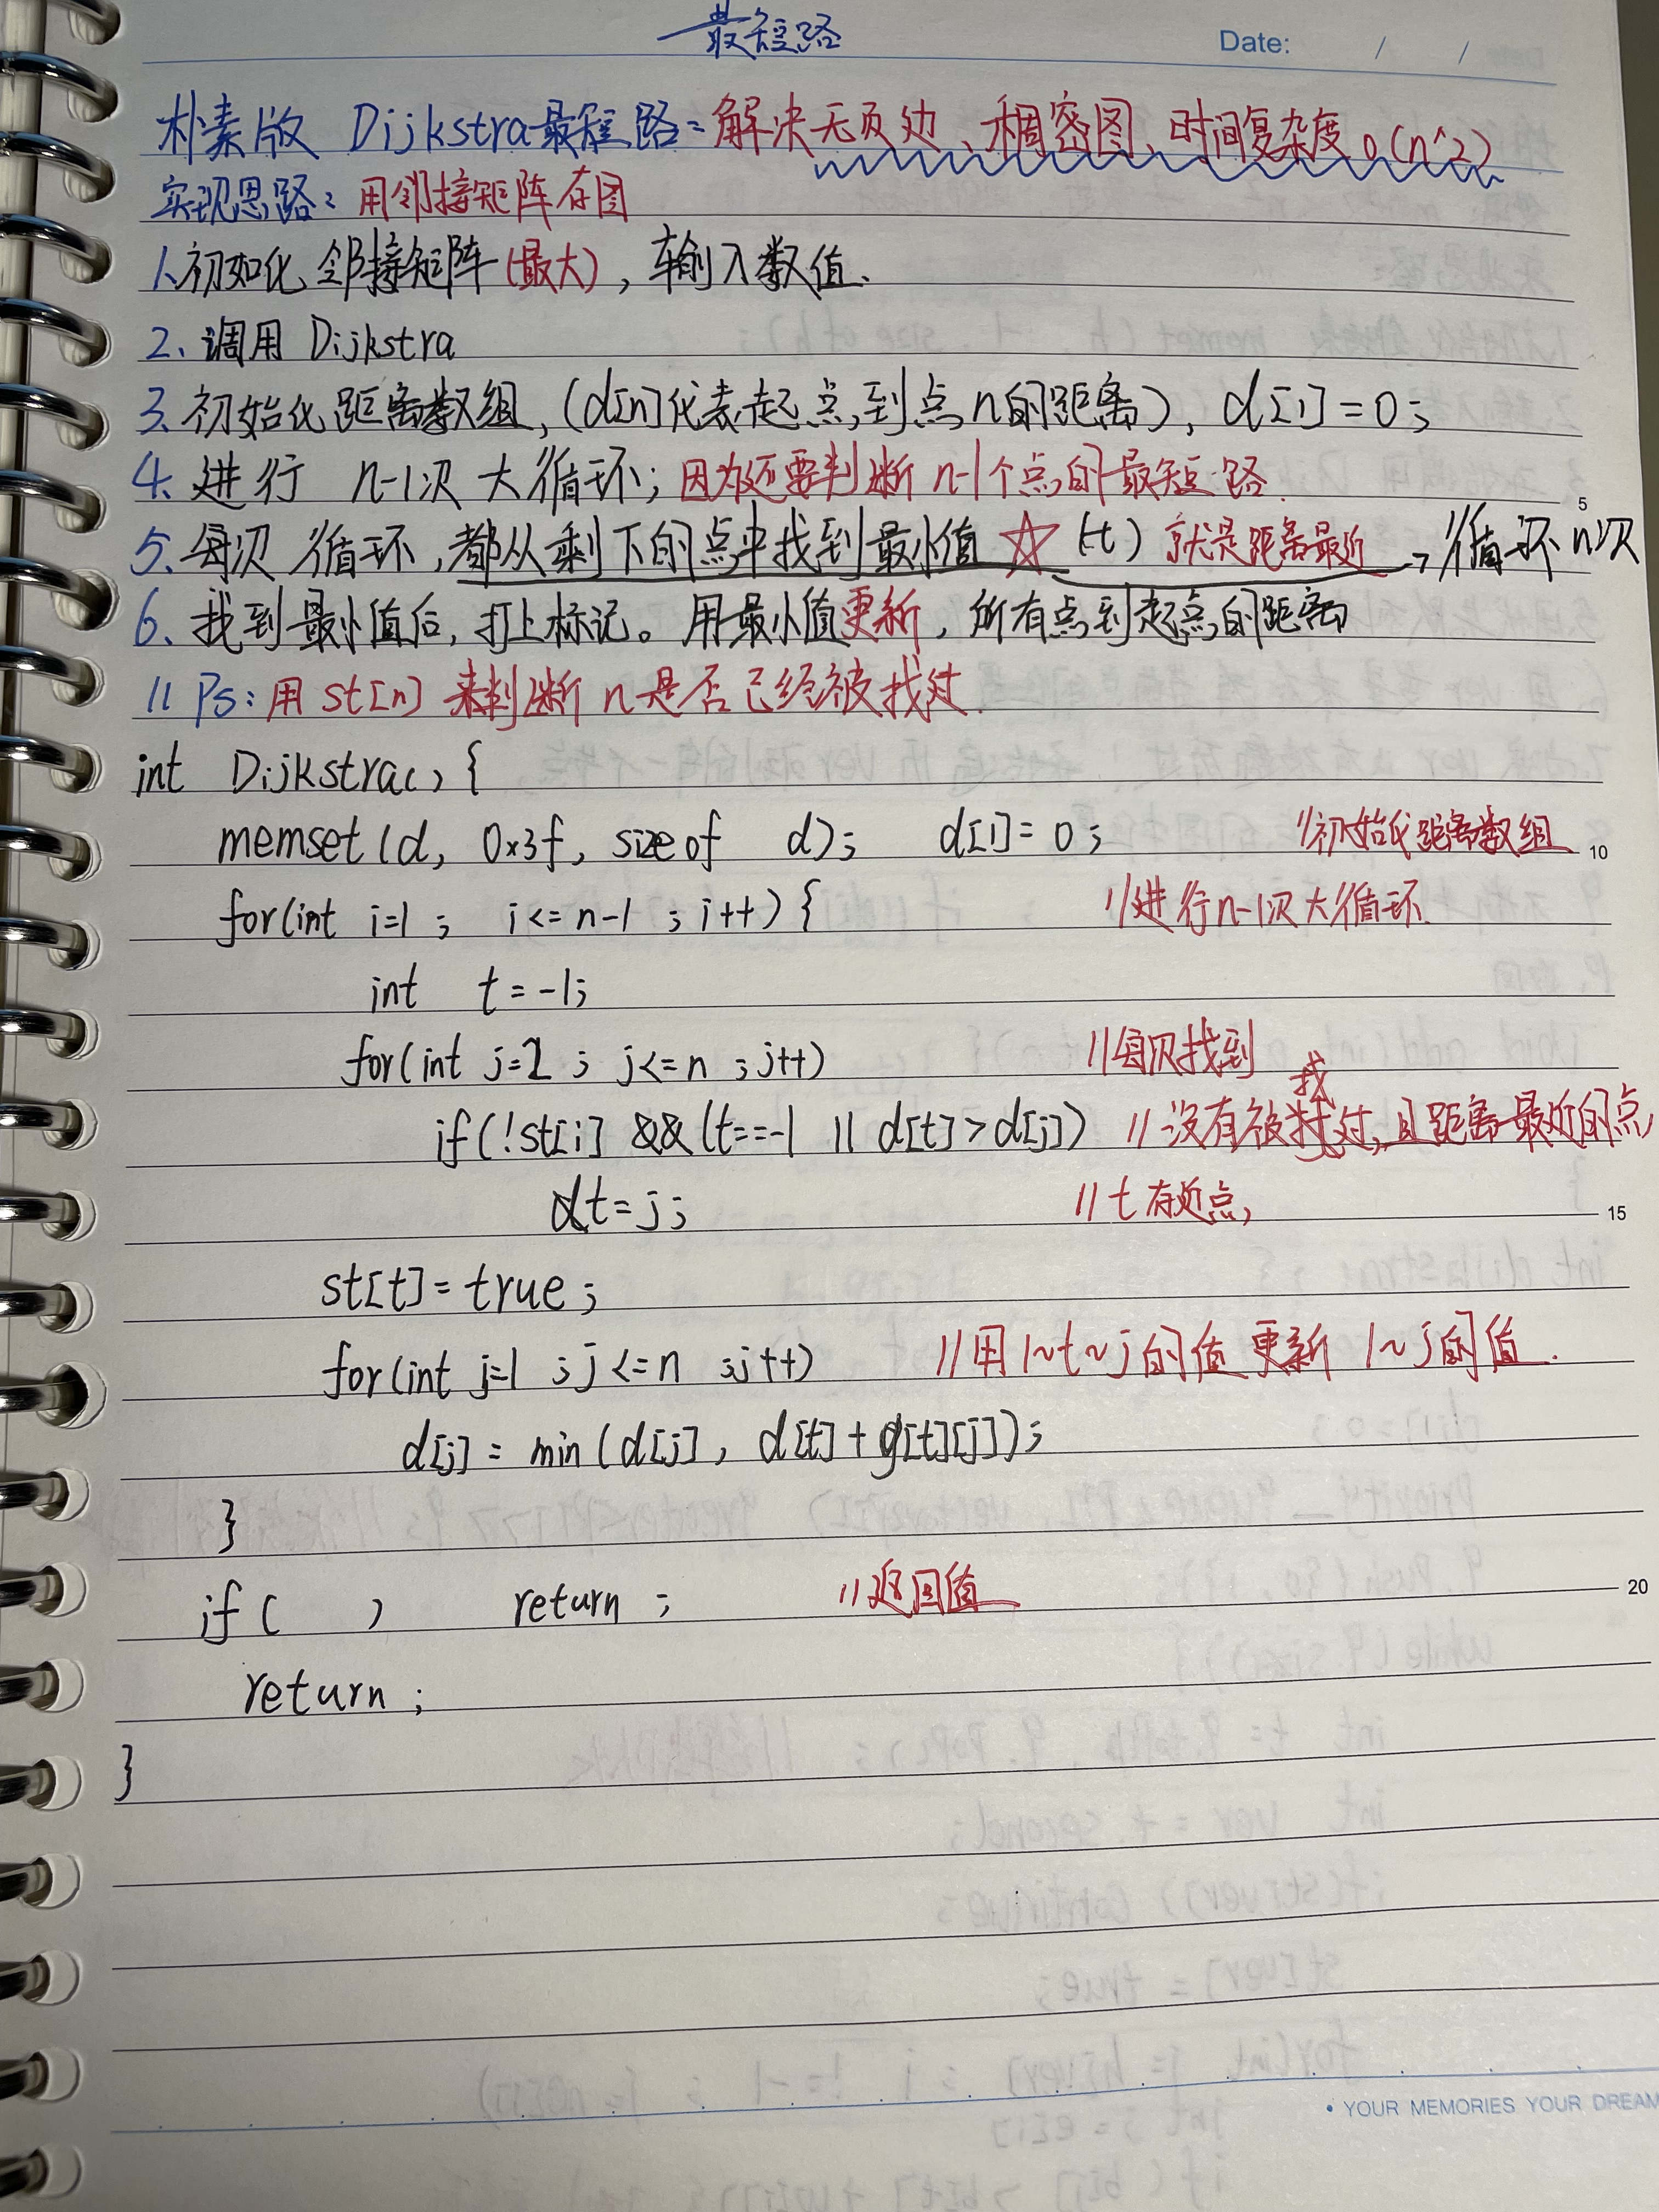 最短路
Date: / /
朴素版 Dijkstra最短路：解决无负边、稠密图、时间复杂度 o(n^2)
实现思路：用邻接矩阵存图
1、初如化 邻接矩阵(最大)，输入数值.
2、调用 Dijkstra
3、初始化距离数组，(d[n]代表起点到点n的距离)，d[1]=0；
4、进行 n-1次 大循环；因为还要判断 n-1个点的最短路.
5
5、每次循环，都从剩下的点中找到最小值 ☆ (t) 就是距离最近 → 循环n次
6、找到最小值后，打上标记。用最小值更新，所有点到起点的距离
// Ps：用 st[n] 来判断 n是否已经被找过.
int Dijkstra() {
memset(d, 0x3f, sizeof d); d[1]=0; //初始化距离数组
10
for(int i=1; i<=n-1; i++){ //进行n-1次大循环.
int t=-1;
for(int j=1; j<=n; j++) //每次找到
找
if(!st[i] &&(t==-1 || d[t]>d[j]) //没有被找过,且距离最近的点
t=j; //t存近点,
15
st[t]=true;
for(int j=1; j<=n; j++) //用1~t~j的值更新 1~j的值.
d[j]=min(d[j], d[t]+g[t][j]);
}
if( ) return; //返回值
20
return;
}
• YOUR MEMORIES YOUR DREAM